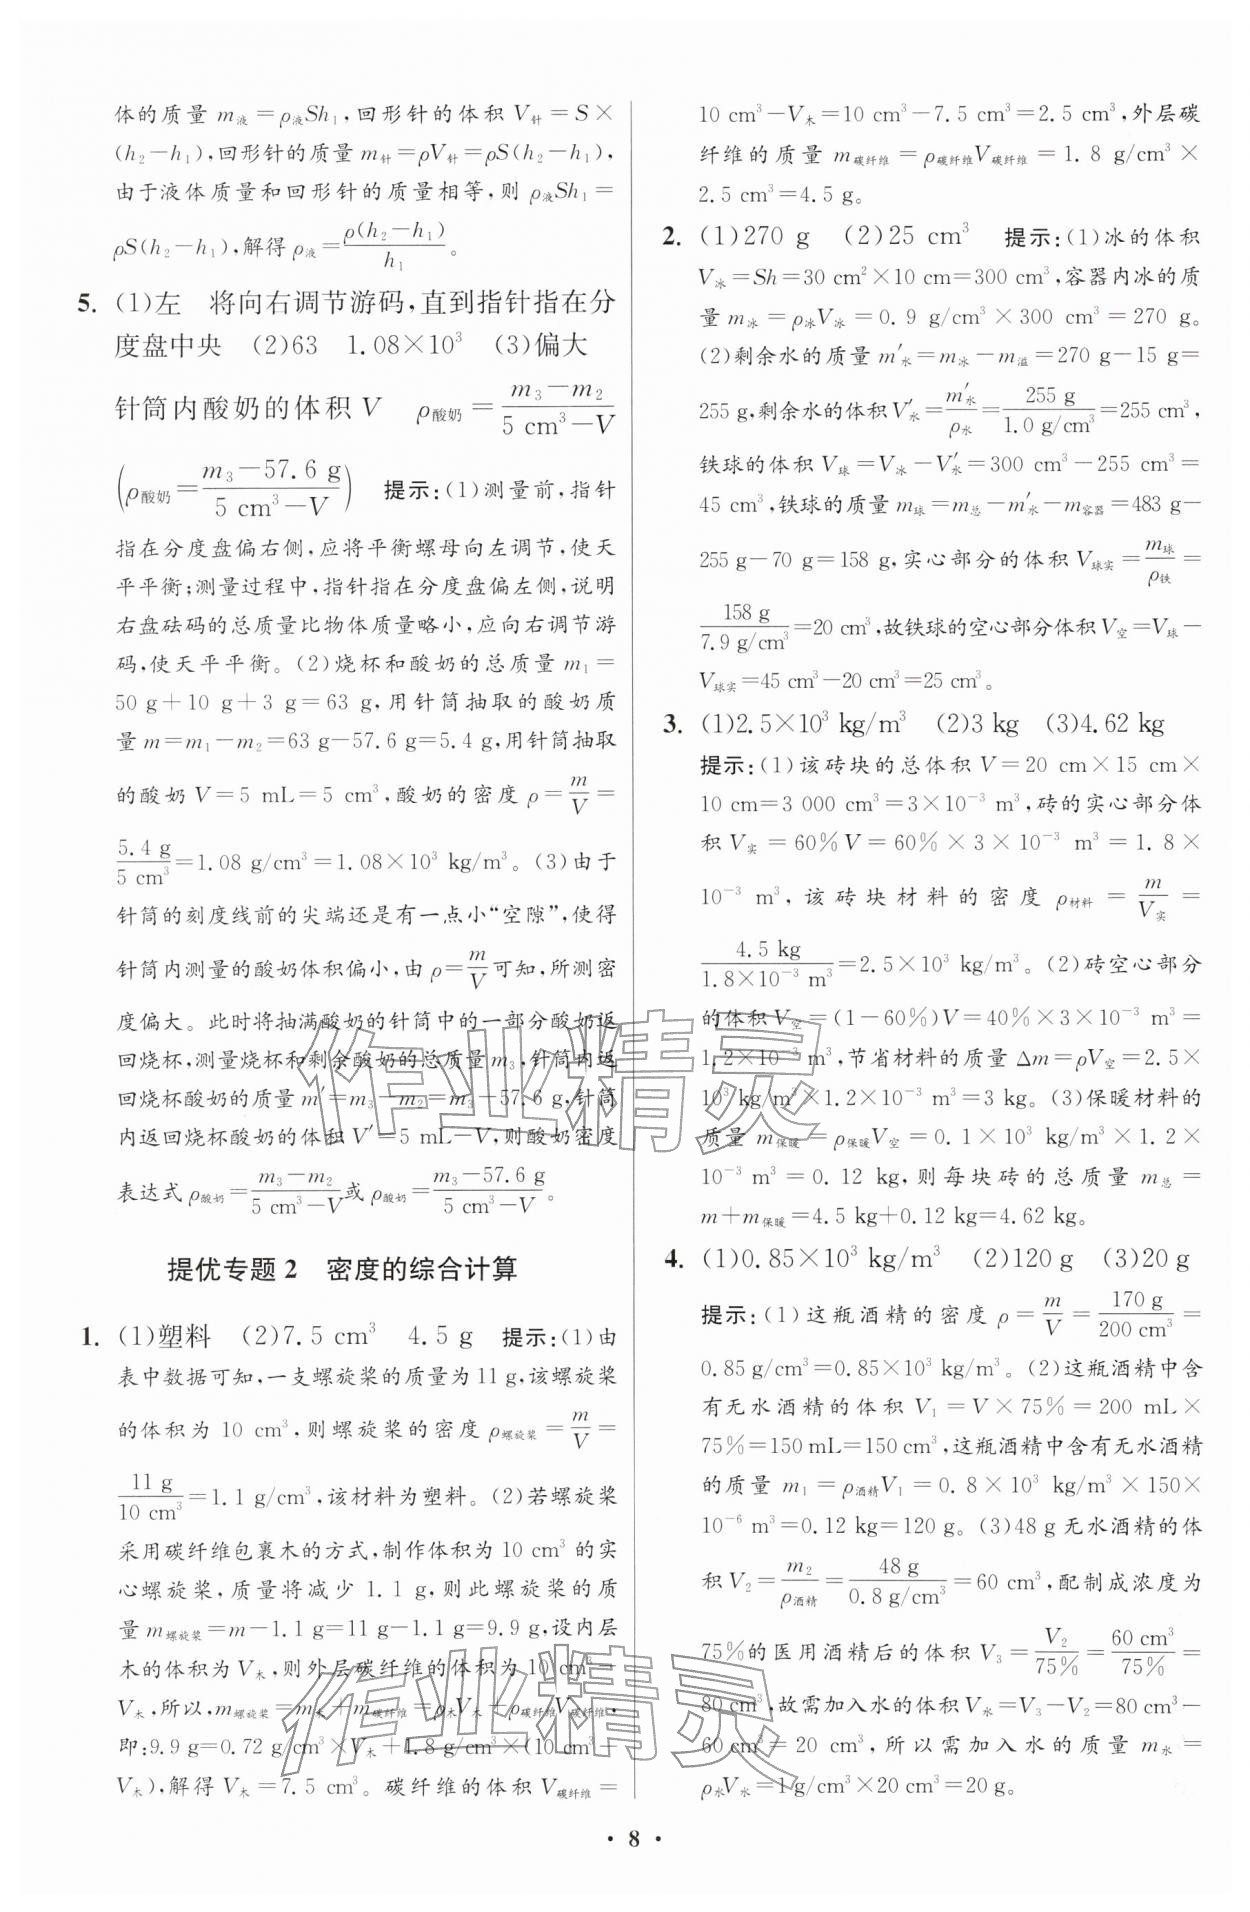 体的质量 m液＝ρ液Sh₁，回形针的体积 V针＝S×
(h₂－h₁)，回形针的质量 m针＝ρV针＝ρS(h₂－h₁)，
由于液体质量和回形针的质量相等，则 ρ液Sh₁＝
ρS(h₂－h₁)，解得 ρ液＝ρ(h₂－h₁)/h₁。
5. (1)左　将向右调节游码，直到指针指在分
度盘中央　(2)63　1.08×10³　(3)偏大
针筒内酸奶的体积 V　ρ酸奶＝(m₃－m₂)/(5 cm³－V)
(ρ酸奶＝(m₃－57.6 g)/(5 cm³－V))　提示：(1)测量前，指针
指在分度盘偏右侧，应将平衡螺母向左调节，使天
平平衡；测量过程中，指针指在分度盘偏左侧，说明
右盘砝码的总质量比物体质量略小，应向右调节游
码，使天平平衡。(2)烧杯和酸奶的总质量 m₁＝
50 g＋10 g＋3 g＝63 g，用针筒抽取的酸奶质
量 m＝m₁－m₂＝63 g－57.6 g＝5.4 g，用针筒抽取
的酸奶 V＝5 mL＝5 cm³，酸奶的密度 ρ＝m/V＝
5.4 g/5 cm³＝1.08 g/cm³＝1.08×10³ kg/m³。(3)由于
针筒的刻度线前的尖端还是有一点小“空隙”，使得
针筒内测量的酸奶体积偏小，由 ρ＝m/V可知，所测密
度偏大。此时将抽满酸奶的针筒中的一部分酸奶返
回烧杯，测量烧杯和剩余酸奶的总质量 m₃，针筒内返
回烧杯酸奶的质量 m′＝m₃－m₂＝m₃－57.6 g，针筒
内返回烧杯酸奶的体积 V′＝5 mL－V，则酸奶密度
表达式 ρ酸奶＝(m₃－m₂)/(5 cm³－V)或 ρ酸奶＝(m₃－57.6 g)/(5 cm³－V)。
提优专题 2　密度的综合计算
1. (1)塑料　(2)7.5 cm³　4.5 g　提示：(1)由
表中数据可知，一支螺旋桨的质量为 11 g，该螺旋桨
的体积为 10 cm³，则螺旋桨的密度 ρ螺旋桨＝m/V＝
11 g/10 cm³＝1.1 g/cm³，该材料为塑料。(2)若螺旋桨
采用碳纤维包裹木的方式，制作体积为 10 cm³ 的实
心螺旋桨，质量将减少 1.1 g，则此螺旋桨的质
量 m螺旋桨＝m－1.1 g＝11 g－1.1 g＝9.9 g，设内层
木的体积为 V木，则外层碳纤维的体积为 10 cm³－
V木，所以，m螺旋桨＝m木＋m碳纤维＝ρ木V木＋ρ碳纤维V碳纤维，
即：9.9 g＝0.72 g/cm³×V木＋1.8 g/cm³×(10 cm³－
V木)，解得 V木＝7.5 cm³。碳纤维的体积 V碳纤维＝
10 cm³－V木＝10 cm³－7.5 cm³＝2.5 cm³，外层碳
纤维的质量 m碳纤维＝ρ碳纤维V碳纤维＝1.8 g/cm³×
2.5 cm³＝4.5 g。
2. (1)270 g　(2)25 cm³　提示：(1)冰的体积
V冰＝Sh＝30 cm²×10 cm＝300 cm³，容器内冰的质
量 m冰＝ρ冰V冰＝0.9 g/cm³×300 cm³＝270 g。
(2)剩余水的质量 m′水＝m冰－m溢＝270 g－15 g＝
255 g，剩余水的体积 V′水＝m′水/ρ水＝255 g/1.0 g/cm³＝255 cm³，
铁球的体积 V球＝V冰－V′水＝300 cm³－255 cm³＝
45 cm³，铁球的质量 m球＝m总－m′水－m容器＝483 g－
255 g－70 g＝158 g，实心部分的体积 V球实＝m球/ρ铁＝
158 g/7.9 g/cm³＝20 cm³，故铁球的空心部分体积 V空＝V球－
V球实＝45 cm³－20 cm³＝25 cm³。
3. (1)2.5×10³ kg/m³　(2)3 kg　(3)4.62 kg
提示：(1)该砖块的总体积 V＝20 cm×15 cm×
10 cm＝3 000 cm³＝3×10⁻³ m³，砖的实心部分体
积 V实＝60%V＝60%×3×10⁻³ m³＝1.8×
10⁻³ m³，该砖块材料的密度 ρ材料＝m/V实＝
4.5 kg/1.8×10⁻³ m³＝2.5×10³ kg/m³。(2)砖空心部分
的体积 V空＝(1－60%)V＝40%×3×10⁻³ m³＝
1.2×10⁻³ m³，节省材料的质量 Δm＝ρV空＝2.5×
10³ kg/m³×1.2×10⁻³ m³＝3 kg。(3)保暖材料的
质量 m保暖＝ρ保暖V空＝0.1×10³ kg/m³×1.2×
10⁻³ m³＝0.12 kg，则每块砖的总质量 m总＝
m＋m保暖＝4.5 kg＋0.12 kg＝4.62 kg。
4. (1)0.85×10³ kg/m³　(2)120 g　(3)20 g
提示：(1)这瓶酒精的密度 ρ＝m/V＝170 g/200 cm³＝
0.85 g/cm³＝0.85×10³ kg/m³。(2)这瓶酒精中含
有无水酒精的体积 V₁＝V×75%＝200 mL×
75%＝150 mL＝150 cm³，这瓶酒精中含有无水酒精
的质量 m₁＝ρ酒精V₁＝0.8×10³ kg/m³×150×
10⁻⁶ m³＝0.12 kg＝120 g。(3)48 g 无水酒精的体
积 V₂＝m₂/ρ酒精＝48 g/0.8 g/cm³＝60 cm³，配制成浓度为
75%的医用酒精后的体积 V₃＝V₂/75%＝60 cm³/75%＝
80 cm³，故需加入水的体积 V水＝V₃－V₂＝80 cm³－
60 cm³＝20 cm³，所以需加入水的质量 m水＝
ρ水V水＝1 g/cm³×20 cm³＝20 g。
· 8 ·
作业精灵
作业精灵